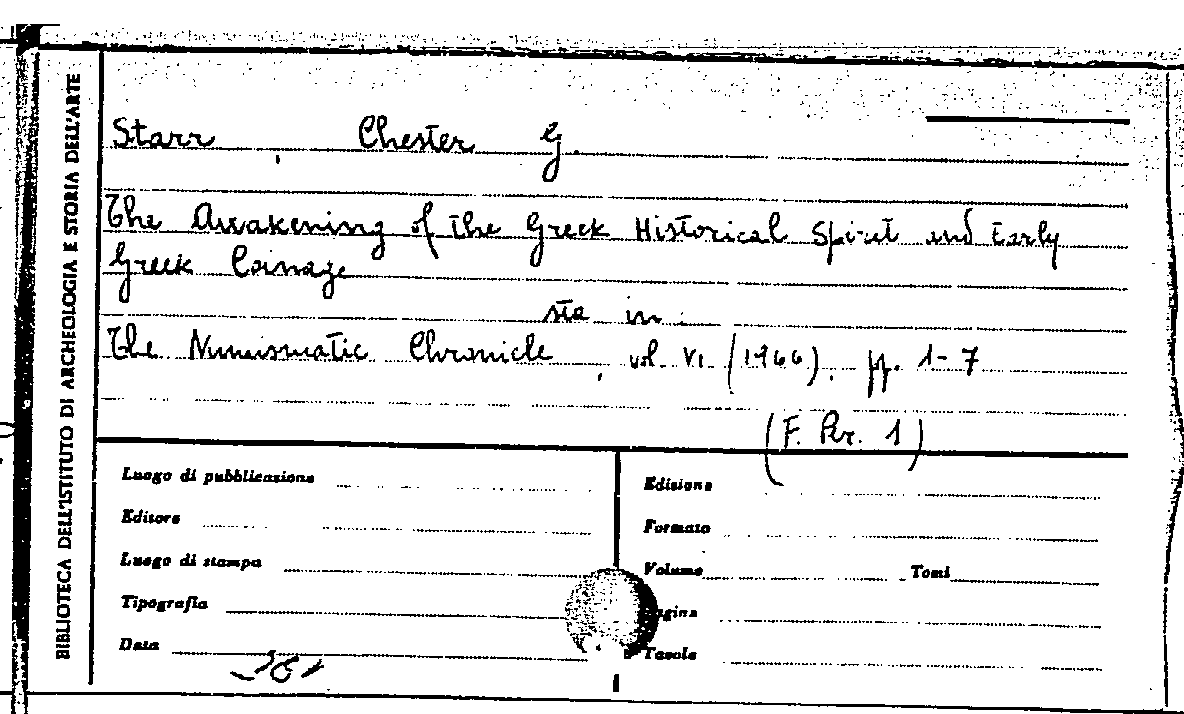 BIBLIOTECA DELL'ISTITUTO DI ARCHEOLOGIA E STORIA DELL'ARTE
Starr, Chester G.
The Awakening of the Greek Historical Spirit and Early
Greek Coinage
sta in:
The Numismatic Chronicle, vol. VI (1966), pp. 1-7
(F. Per. 1)
Luogo di pubblicazione
Editore
Luogo di stampa
Tipografia
Data
Edizione
Formato
Volume Tomi
Pagine
Tavole